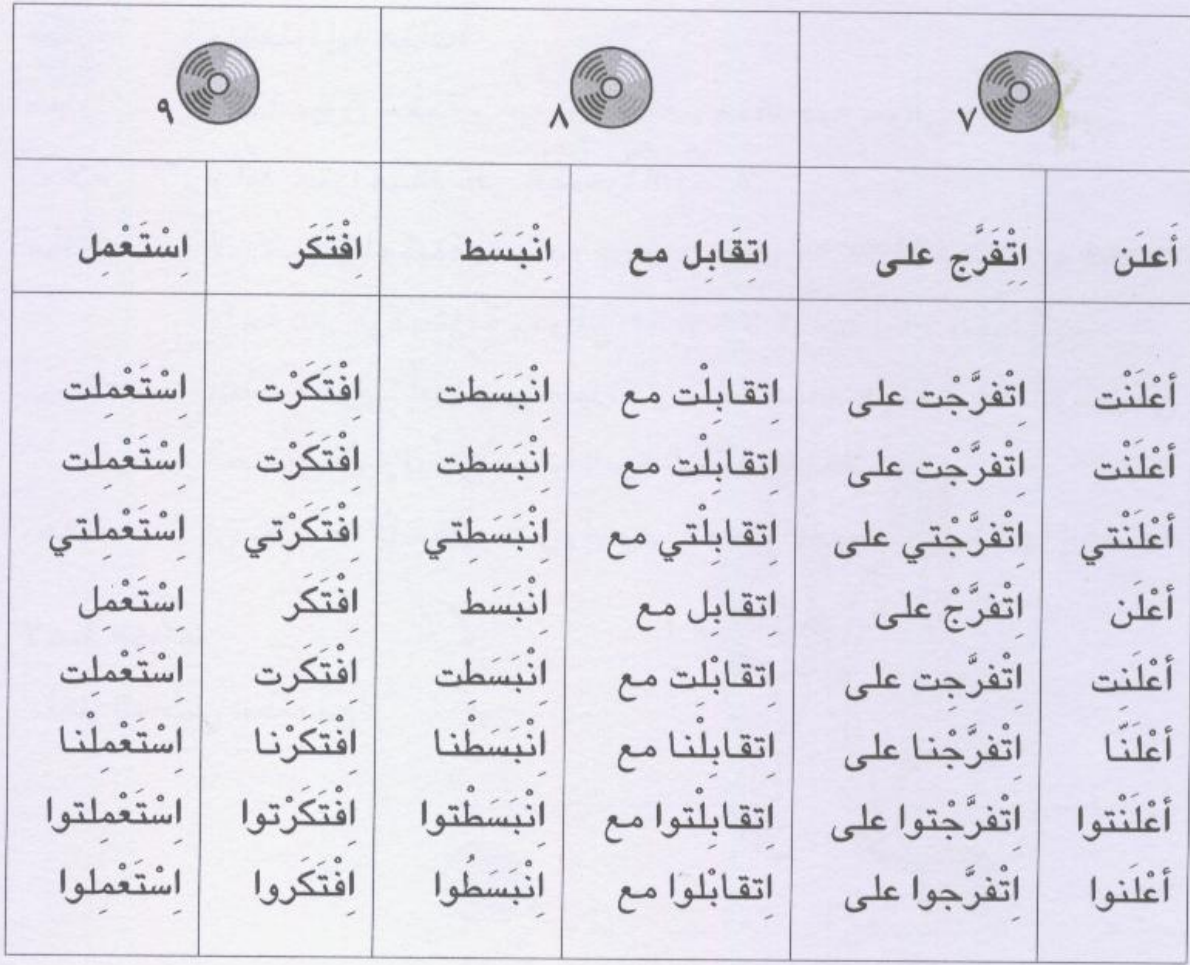 ٧ ٨ ٩
أَعلَن اِتِْفَرَّج على اتِقَابِل مع انْبَسَط اِفْتَكَر اِسْتَعْمِل
أعْلَنْت اِتْفرَّجْت على اِتقابِلْت مع اِنْبَسَطت اِفْتَكَرْت اِسْتَعْمِلت
أعْلَنْت اِتْفرَّجْت على اِتقابِلْت مع اِنْبَسَطت اِفْتَكَرْت اِسْتَعْمِلت
أعْلَنْتي اِتْفرَّجْتي على اِتقابِلْتي مع اِنْبَسَطتي اِفْتَكَرْتي اِسْتَعْمِلتي
أعْلَن اِتْفرَّجْ على اِتقابِل مع اِنْبَسَط اِفْتَكَر اِسْتَعْمِل
أعْلَنِت اِتْفرَّجِت على اِتقابْلِت مع اِنْبَسَطِت اِفْتَكَرت اِسْتَعْمِلت
أعْلَنّا اِتْفرَّجْنا على اِتقابِلْنا مع اِنْبَسَطْنا اِفْتَكَرْنا اِسْتَعْمِلْنا
أعْلَنْتوا اِتْفرَّجْتوا على اِتقابِلْتوا مع اِنْبَسَطْتوا اِفْتَكَرْتوا اِسْتَعْمِلتوا
أعْلَنوا اِتْفرَّجوا على اِتقابْلوا مع اِنْبَسَطُوا اِفْتَكَروا اِسْتَعْمِلوا